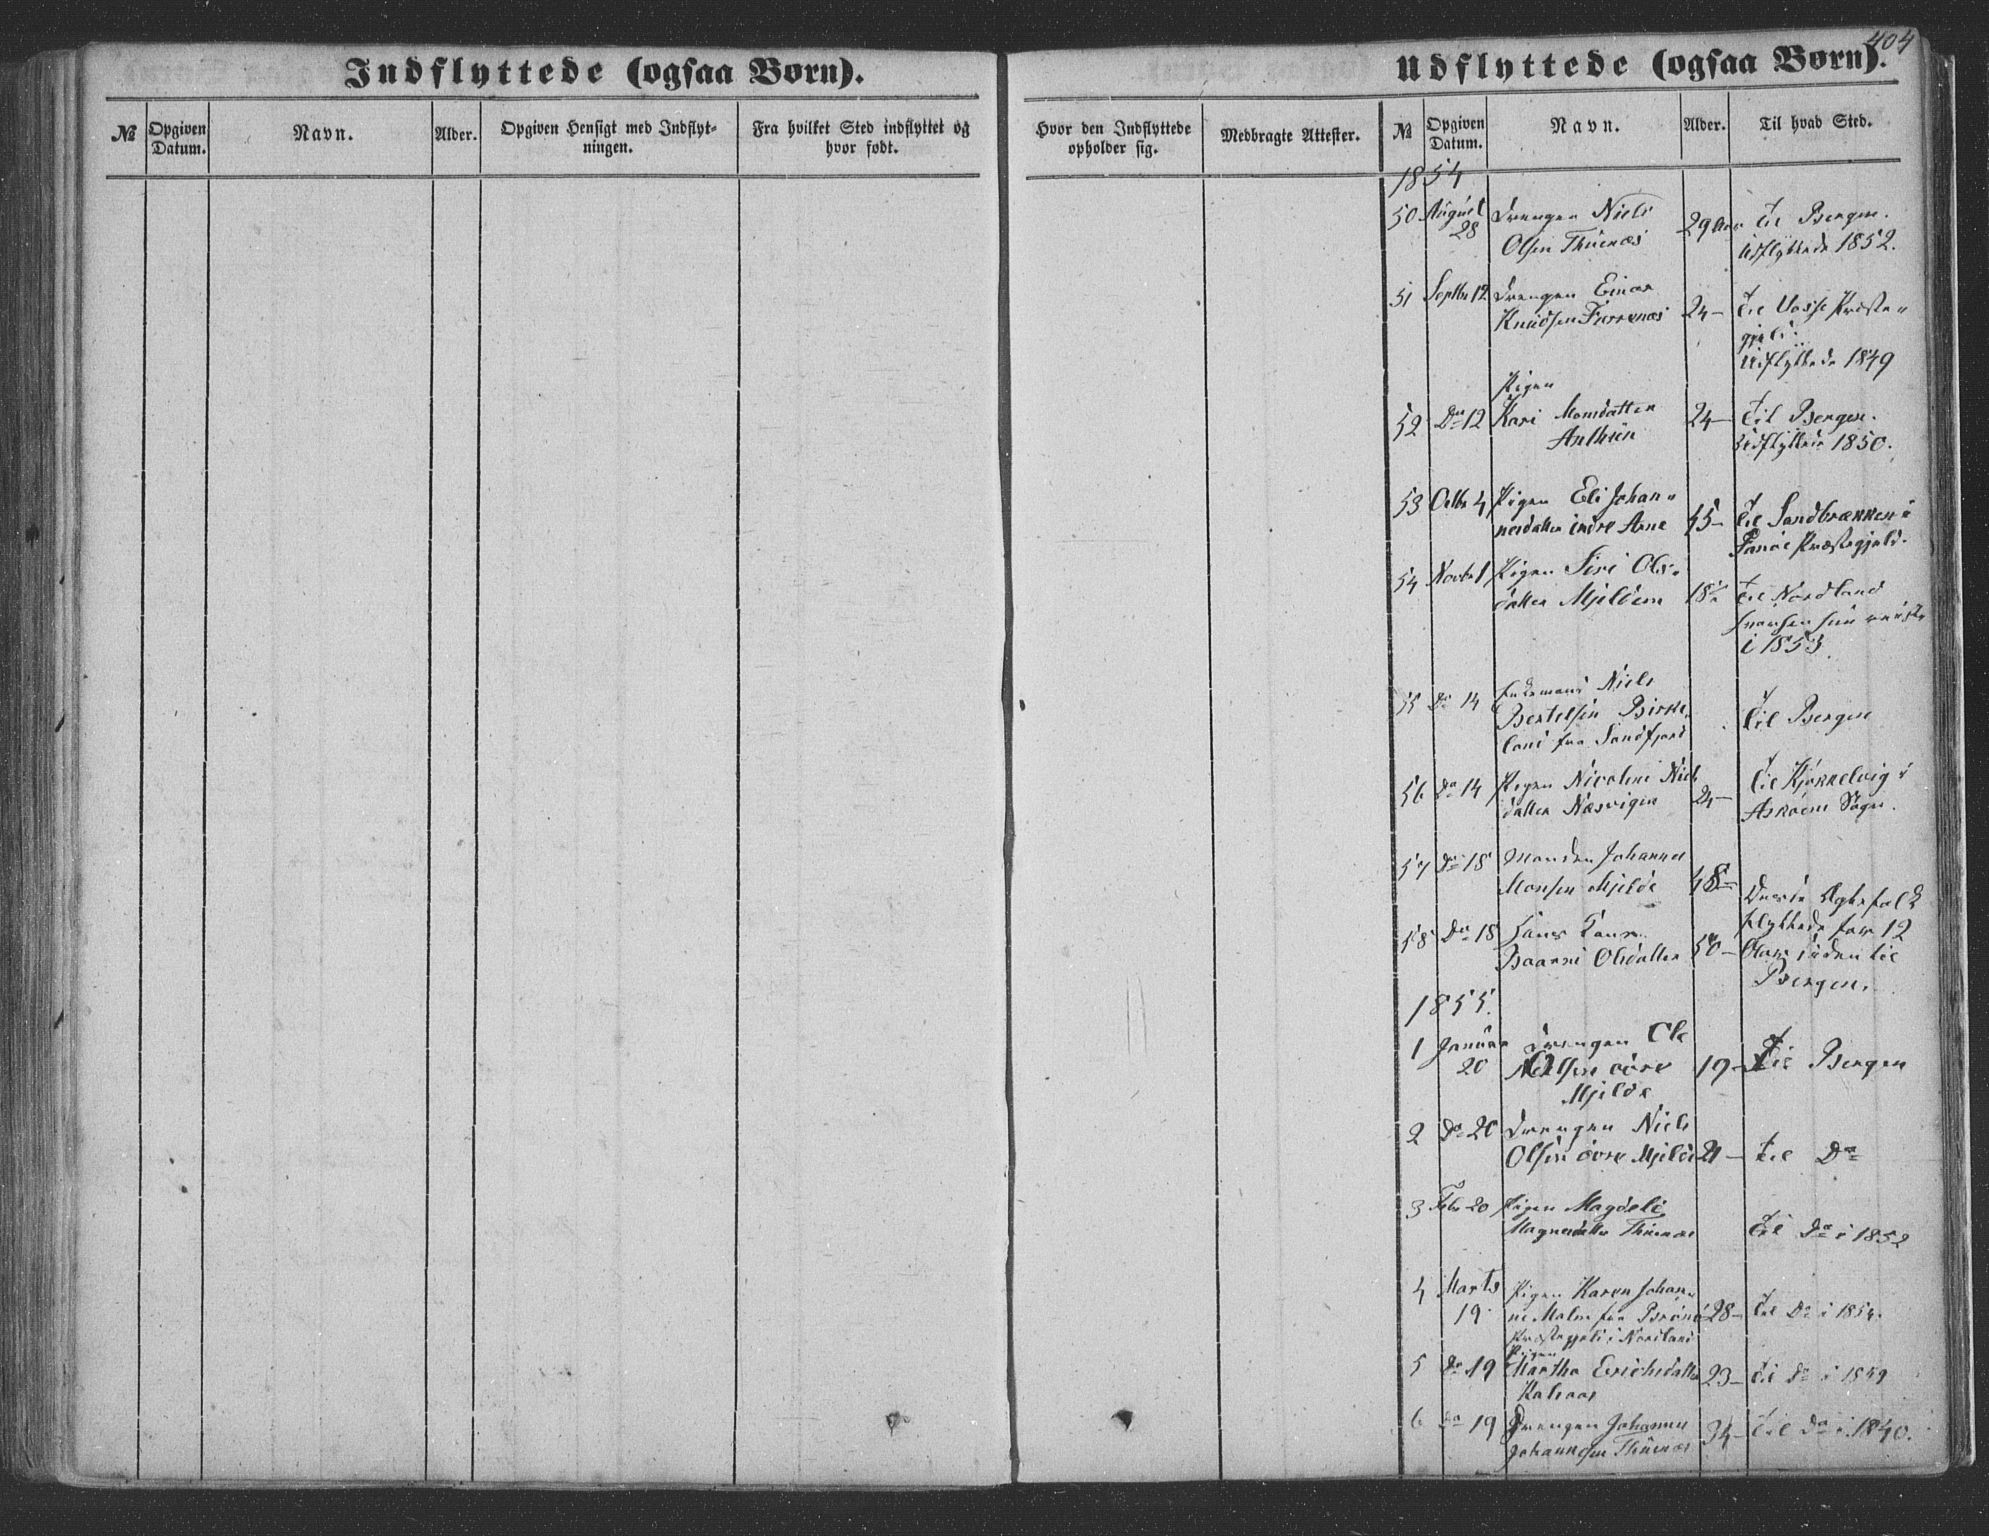 404
Indflyttede (ogsaa Børn).
Udflyttede (ogsaa Børn).
№
Opgiven Datum.
Navn.
Alder.
Opgiven Hensigt med Indflyt-
ningen.
Fra hvilket Sted indflyttet og
hvor født.
Hvor den Indflyttede
opholder sig.
Medbragte Attester.
№
Opgiven Datum.
Navn.
Alder.
Til hvad Sted.
1854
50 August Drengen Niels 29 Aar til Bergen.
28 Olsen Thuenæs udflyttede 1852.
51 Septbr 12 Drengen Einar 24 – til Vosse Præste-
Knudsen Furrenæs gjeld.
udflyttede 1849
Pigen
52 Do 12 Kari Monsdatter 24 – til Bergen.
Anthun udflyttede 1850.
53 Octbr 4 Pigen Eli Johan- 45 – til Sandbrækken i
nesdatter indre Arne Fanøe Præstegjeld.
54 Novbr 1 Pigen Siri Ols- 18½ til Nordland
datter Mjeldem hvorhen hun reiste
i 1853.
55 Do 14 Enkemand Niels
Bertelsen Birke- til Bergen
land fra Sandfjord
56 Do 14 Pigen Nicolini Niels 24 – til Kjøkkelvig i
datter Næsvigen Askøens Sogn.
57 Do 18 Manden Johannes 48 –
Monsen Mjelde Disse Egtefolk
58 Do 18 Hans Kone flyttede for 12
Baarni Olsdatter 50 – Aar siden til
Bergen.
1855.
1 Januar Drengen Ole
20 Nielsen øvre 19 – til Bergen
Mjelde
2 Do 20 Drengen Niels
Olsen øvre Mjelde 21 – til Do
3 Febr 20 Pigen Magdeli
Magnesdatter Thuenæs til Do i 1852
4 Marts Pigen Karen Johan-
19 ne Malm fra Brønø 28 – til Do i 1854.
Præstegjeld i Nordland
Pigen
5 Do 19 Martha Erichsdatter 23 – til Do i 1849
Kalsaas
6 Do 19 Drengen Johannes
Johannesen Thuenæs 34 – til Do i 1840.